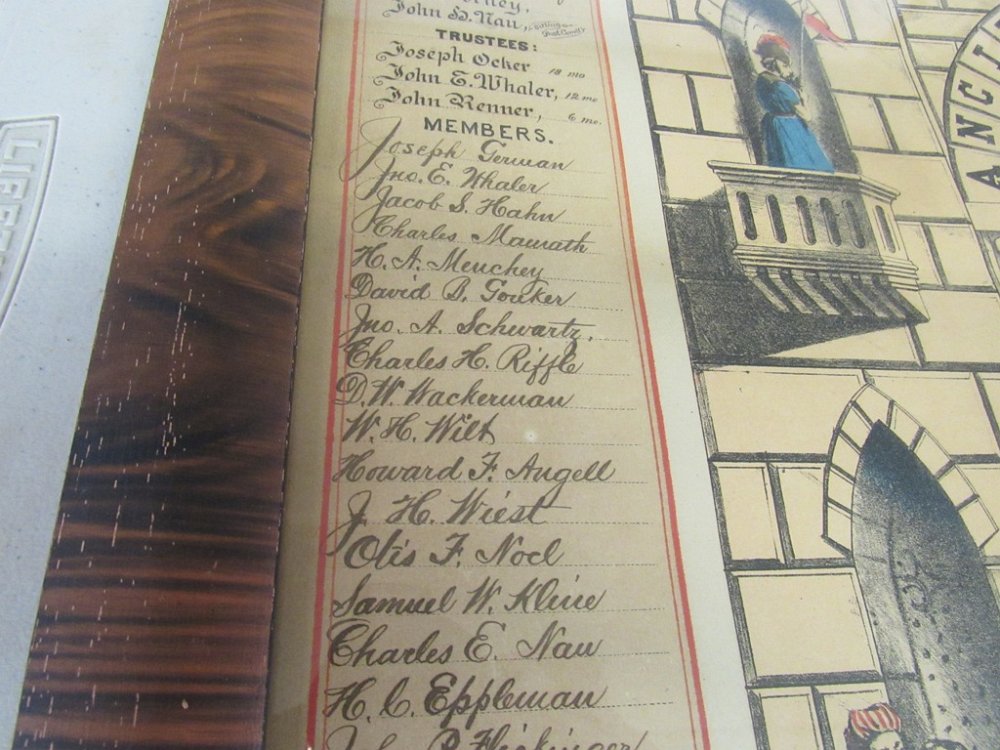 John H. Nau,
TRUSTEES:
Joseph Ocker 18 mo
John E. Whaler, 12 mo
John Renner, 6 mo.
MEMBERS.
Joseph German
Jno. E. Whaler
Jacob S. Hahn
Charles Maurath
H. A. Menchey
David B. Gouker
Jno. A. Schwartz,
Charles H. Riffle
D. W. Wackerman
W. H. Wilt
Howard F. Angell
J. H. Wiest
Otis F. Noel
Samuel W. Kline
Charles E. Nau
H. C. Eppleman
Flickinger
ANCI
LIFE